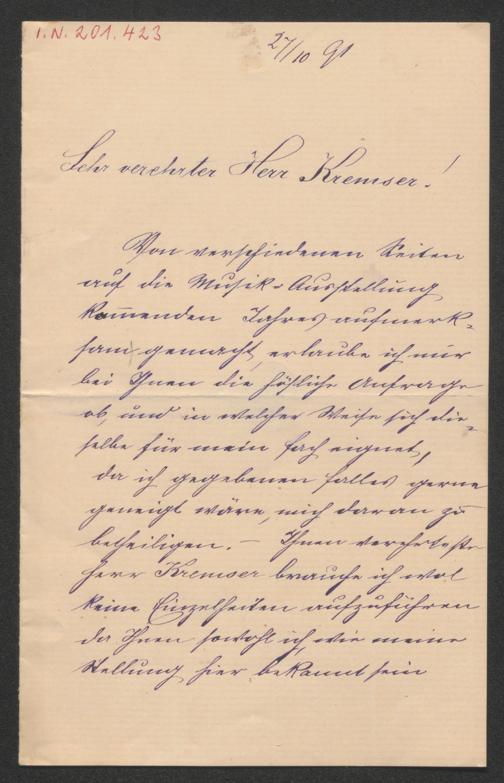 I.N. 201.423
27/10 91
Sehr verehrter Herr Kremser!
Von verschiedenen Seiten
auf die Musik-Ausstellung
kommenden Jahres aufmerk-
sam gemacht, erlaube ich mir
bei Ihnen die höfliche Anfrage
ob, und in welcher Weise sich die-
selbe für mein Fach eignet,
da ich gegebenen Falles gerne
geneigt wäre, mich daran zu
betheiligen. – Ihnen verehrtester
Herr Kremser brauche ich wol
keine Einzelheiten aufzuführen
da Ihnen sowohl ich, wie meine
Stellung hier bekannt sein